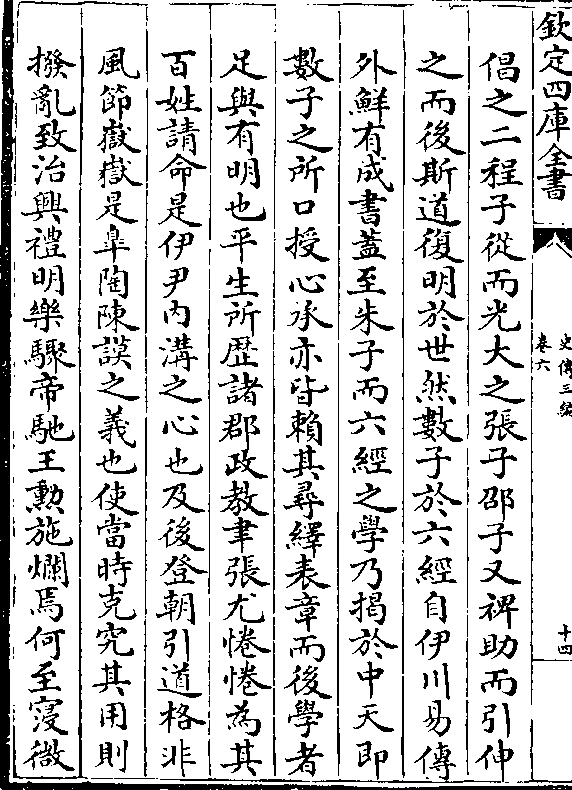 欽定四庫全書
史傳三編
卷六
十四
倡之二程子從而光大之張子邵子又裨助而引伸
之而後斯道復明於世然數子於六經自伊川易傳
外鮮有成書蓋至朱子而六經之學乃揭於中天即
數子之所口授心承亦皆賴其尋繹表章而後學者
足與有明也平生所歴諸郡政教聿張尤惓惓為其
百姓請命是伊尹内溝之心也及後登朝引道格非
風節嶽嶽是臯陶陳謨之義也使當時克究其用則
撥亂致治興禮明樂驟帝馳王勳施爛焉何至寖微